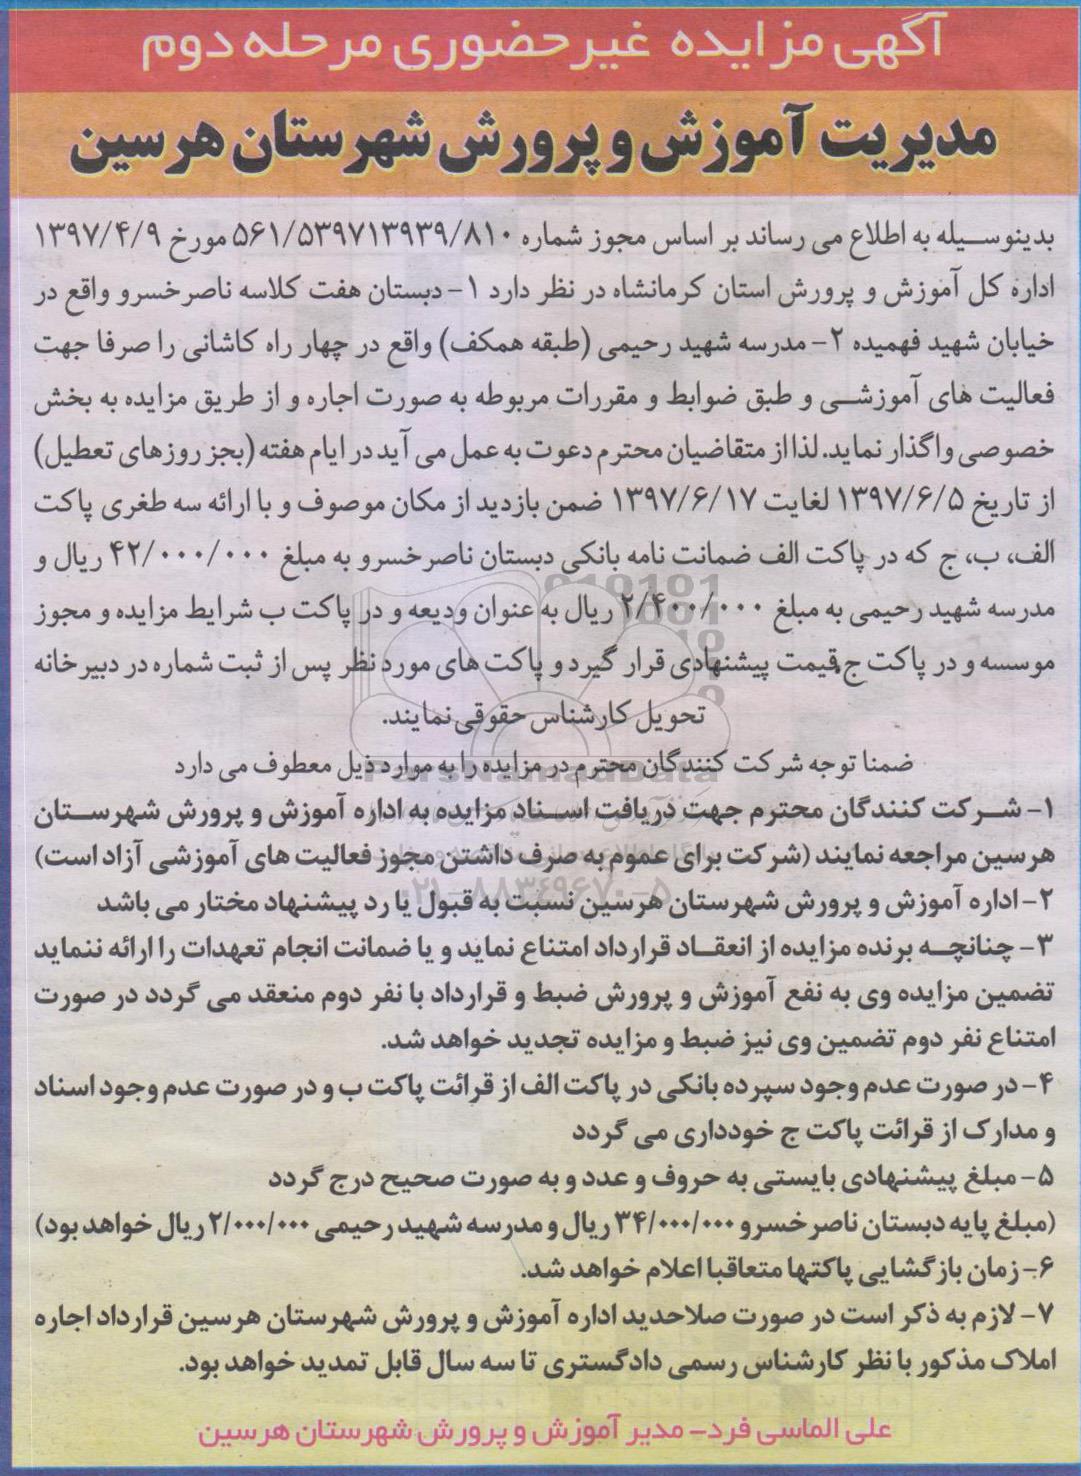 آگهی مزایده غیرحضوری مرحله دوم
مدیریت آموزش و پرورش شهرستان هرسین
بدینوسیله به اطلاع می رساند بر اساس مجوز شماره ۵۶۱/۵۳۹۷۱۳۹۳۹/۸۱۰ مورخ ۱۳۹۷/۴/۹
اداره کل آموزش و پرورش استان کرمانشاه در نظر دارد ۱- دبستان هفت کلاسه ناصرخسرو واقع در
خیابان شهید فهمیده ۲- مدرسه شهید رحیمی (طبقه همکف) واقع در چهار راه کاشانی را صرفا جهت
فعالیت های آموزشی و طبق ضوابط و مقررات مربوطه به صورت اجاره و از طریق مزایده به بخش
خصوصی واگذار نماید. لذا از متقاضیان محترم دعوت به عمل می آید در ایام هفته (بجز روزهای تعطیل)
از تاریخ ۱۳۹۷/۶/۵ لغایت ۱۳۹۷/۶/۱۷ ضمن بازدید از مکان موصوف و با ارائه سه طغری پاکت
الف، ب، ج که در پاکت الف ضمانت نامه بانکی دبستان ناصرخسرو به مبلغ ۴۲/۰۰۰/۰۰۰ ریال و
مدرسه شهید رحیمی به مبلغ ۲/۴۰۰/۰۰۰ ریال به عنوان ودیعه و در پاکت ب شرایط مزایده و مجوز
موسسه و در پاکت ج قیمت پیشنهادی قرار گیرد و پاکت های مورد نظر پس از ثبت شماره در دبیرخانه
تحویل کارشناس حقوقی نمایند.
ضمنا توجه شرکت کنندگان محترم در مزایده را به موارد ذیل معطوف می دارد
ParsNamadData
۱- شرکت کنندگان محترم جهت دریافت اسناد مزایده به اداره آموزش و پرورش شهرستان
هرسین مراجعه نمایند (شرکت برای عموم به صرف داشتن مجوز فعالیت های آموزشی آزاد است)
۰۲۱-۸۸۳۴۹۶۷۰-۵
۲- اداره آموزش و پرورش شهرستان هرسین نسبت به قبول یا رد پیشنهاد مختار می باشد
۳- چنانچه برنده مزایده از انعقاد قرارداد امتناع نماید و یا ضمانت انجام تعهدات را ارائه ننماید
تضمین مزایده وی به نفع آموزش و پرورش ضبط و قرارداد با نفر دوم منعقد می گردد در صورت
امتناع نفر دوم تضمین وی نیز ضبط و مزایده تجدید خواهد شد.
۴- در صورت عدم وجود سپرده بانکی در پاکت الف از قرائت پاکت ب و در صورت عدم وجود اسناد
و مدارک از قرائت پاکت ج خودداری می گردد
۵- مبلغ پیشنهادی بایستی به حروف و عدد و به صورت صحیح درج گردد
(مبلغ پایه دبستان ناصرخسرو ۳۴/۰۰۰/۰۰۰ ریال و مدرسه شهید رحیمی ۲/۰۰۰/۰۰۰ ریال خواهد بود)
۶- زمان بازگشایی پاکتها متعاقبا اعلام خواهد شد.
۷- لازم به ذکر است در صورت صلاحدید اداره آموزش و پرورش شهرستان هرسین قرارداد اجاره
املاک مذکور با نظر کارشناس رسمی دادگستری تا سه سال قابل تمدید خواهد بود.
علی الماسی فرد- مدیر آموزش و پرورش شهرستان هرسین